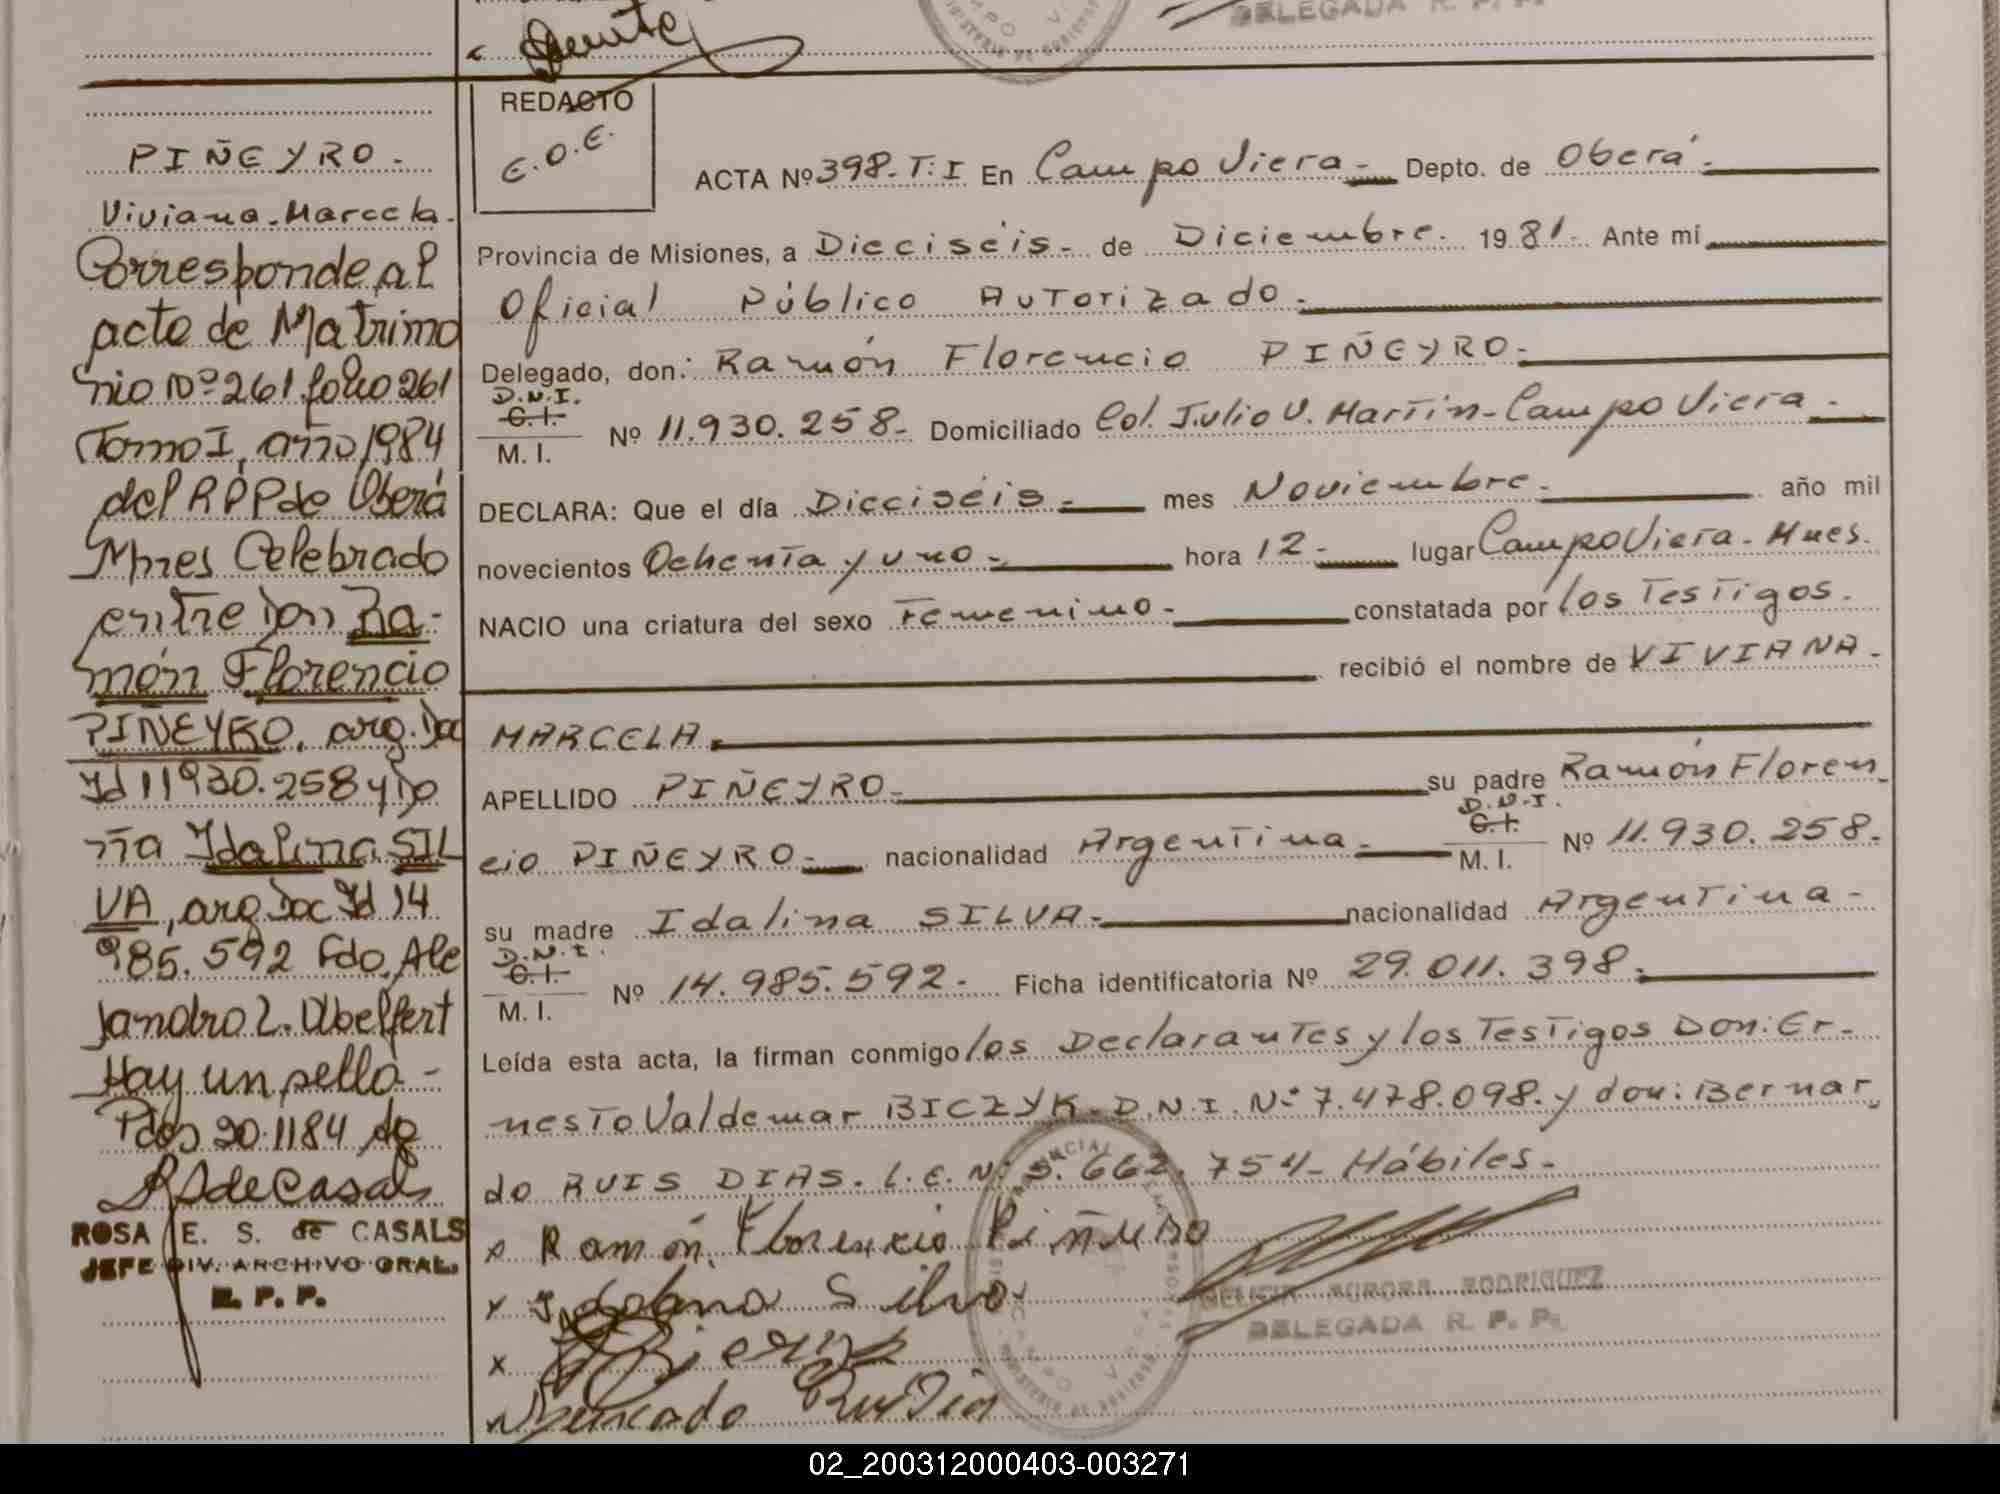 DELEGADA R. P. P.
PIÑEYRO.
Viviana Marcela.
Corresponde al
acto de Matrimo
nio Nº 261 folio 261
Tomo I, año 1984
del RPP de Oberá
Mnes Celebrado
entre Don Ra-
món Florencio
PIÑEYRO, arg. Doc
Id 11930.258 y Do
ña Idalina SIL
VA, arg Doc Id 14
985.592 Fdo. Ale
jandro L.
Hay un sello -
Pdas 20.11 84
RSdeCasals
ROSA E. S. de CASALS
JEFE DIV. ARCHIVO GRAL.
R. P. P.
REDACTO
E.O.E.
ACTA Nº 398-T:I En Campo Viera- Depto. de Oberá.
Provincia de Misiones, a Dieciséis- de Diciembre. 1981- Ante mí
Oficial Público Autorizado.
Delegado, don: Ramón Florencio PIÑEYRO-
D.N.I.
C.I.
M. I.
Nº 11.930.258- Domiciliado Col. Julio U. Martin-Campo Viera-
DECLARA: Que el día Dieciséis- mes Noviembre- año mil
novecientos Ochenta y uno- hora 12- lugar Campo Viera. Mnes.
NACIO una criatura del sexo Femenino- constatada por los Testigos.
recibió el nombre de VIVIANA-
MARCELA.
APELLIDO PIÑEYRO- su padre Ramón Floren_
D.N.I.
C.I.
M. I.
cio PIÑEYRO- nacionalidad Argentina- Nº 11.930.258-
su madre Idalina SILVA- nacionalidad Argentina-
D.N.I.
C.I.
M. I.
Nº 14.985.592- Ficha identificatoria Nº 29.011.398-
Leída esta acta, la firman conmigo los Declarantes y los Testigos Don: Er-
nesto Valdemar BICZYK-D.N.I. Nº 7.478.098. y don: Bernar_
do RUIS DIAS. L.E. Nº 5.662.754- Hábiles-
x Ramón Florencio Piñeiro
x Idalina Silva
x
x Bernardo Rui Dia
DELICIA AURORA RODRIGUEZ
DELEGADA R. P. P.
02_200312000403-003271